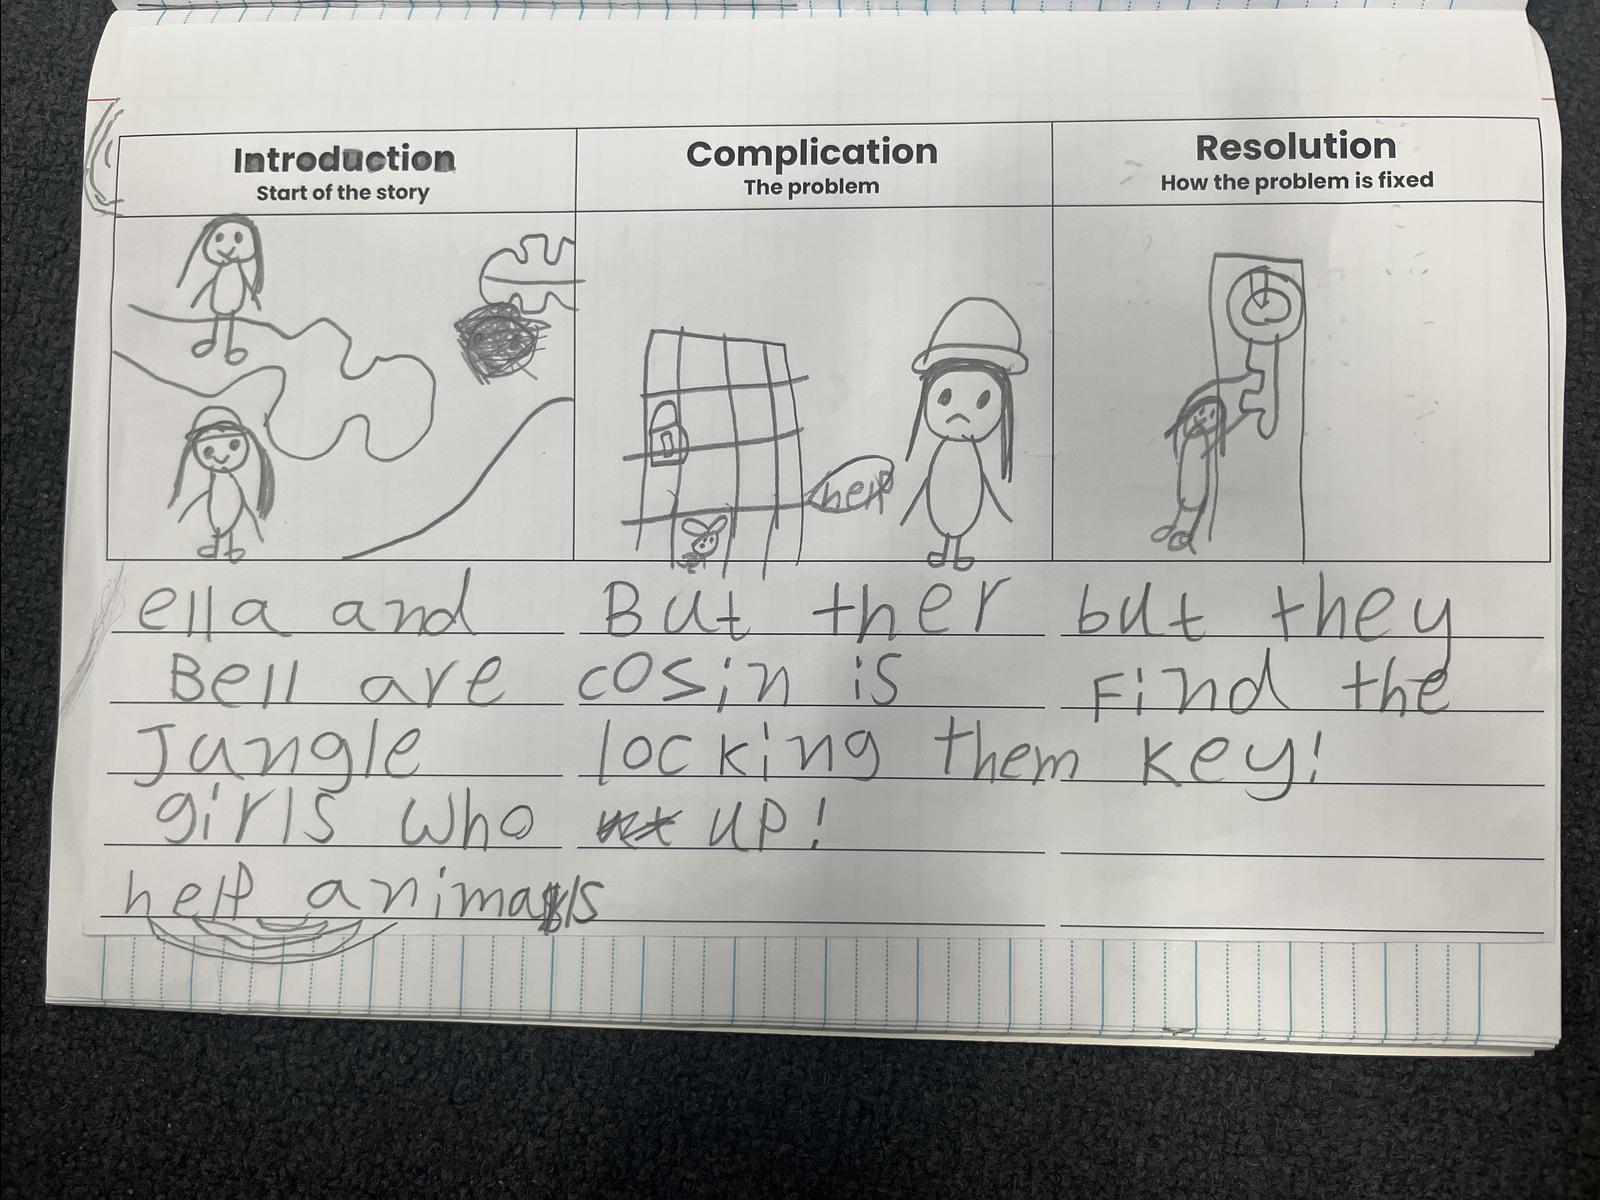 Introduction
Start of the story
Complication
The problem
Resolution
How the problem is fixed
help
ella and
Bell are
Jungle
girls who
help animals
But ther
cosin is
locking them
up!
but they
Find the
key!